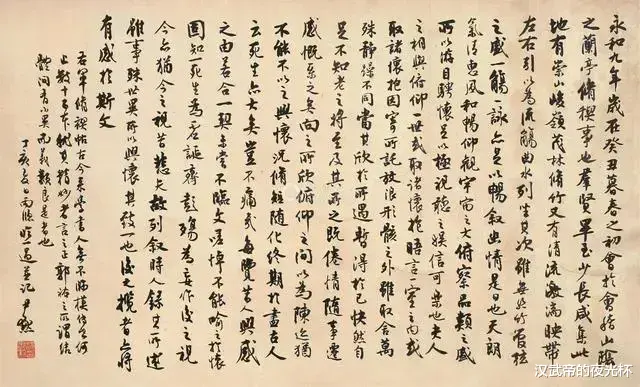 永和九年歲在癸丑暮春之初會於會稽山陰
之蘭亭脩禊事也群賢畢至少長咸集此
地有崇山峻嶺茂林脩竹又有清流激湍映帶
左右引以為流觴曲水列坐其次雖無絲竹管弦
之盛一觴一詠亦足以暢叙幽情是日也天朗
氣清惠風和暢仰觀宇宙之大俯察品類之盛
所以遊目騁懷足以極視聽之娛信可樂也夫人
之相與俯仰一世或取諸懷抱晤言一室之內或
取諸懷抱因寄所託放浪形骸之外雖取舍萬
殊靜躁不同當其欣於所遇暫得於己快然自
足不知老之將至及其所之既倦情隨事遷
感慨係之矣向之所欣俯仰之間以為陳迹猶
不能不以之興懷況脩短隨化終期於盡古人
云死生亦大矣豈不痛哉每覽昔人興感
之由若合一契未嘗不臨文嗟悼不能喻之於懷
固知一死生為虛誕齊彭殤為妄作後之視
今亦猶今之視昔悲夫故列叙時人錄其所述
雖事殊世異所以興懷其致一也後之攬者亦將
有感於斯文
右軍脩禊帖古今來學書人無不臨
止數十百本
丁亥 並記 尹默
汉武帝的夜光杯